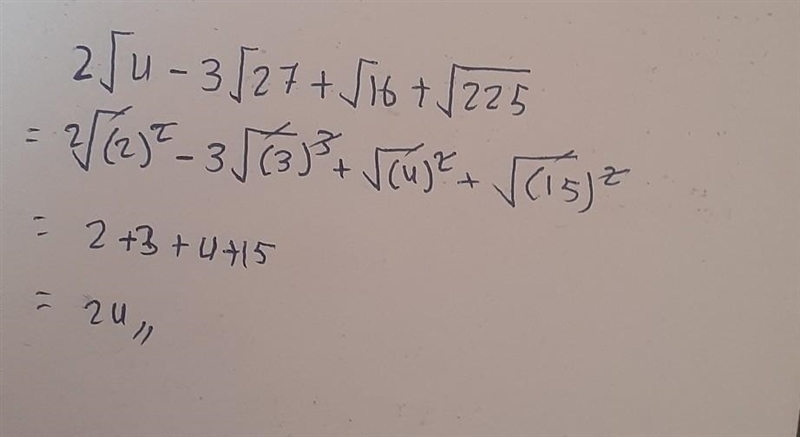 2√4 - 3√27 + √16 + √225
= 2√(2)² - 3√(3)³ + √(4)² + √(15)²
= 2+3+4+15
= 24,,